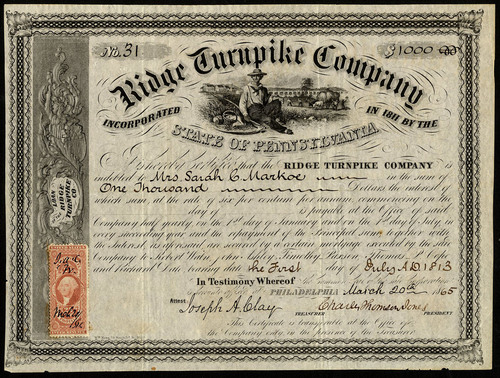 No. 31 $1000 00
Ridge Turnpike Company
INCORPORATED IN 1811 BY THE
STATE OF PENNSYLVANIA
that the RIDGE TURNPIKE COMPANY is
indebted to Mrs Sarah C. Markoe in the sum of
One Thousand Dollars, the interest of
which sum at the rate of six per centum per annum commencing on the
day of is payable at the Office of said
Company half yearly, on the 1st day of January and on the 1st day of July in
every succeeding year and the repayment of the Principal sum, together with
the Interest, as aforesaid are secured by a certain mortgage executed by the said
Company to Robert Waln, John Timothy Paxson, Thomas
and Richard Dale bearing date the First day of July A.D. 1813
In Testimony Whereof
PHILADELPHIA March 20th 1865
Attest
Joseph A. Clay
TREASURER PRESIDENT
This Certificate is transferable at the Office of
the Company only, in the presence of the Treasurer
LOAN
RIDGE
TURNPIKE
CO.